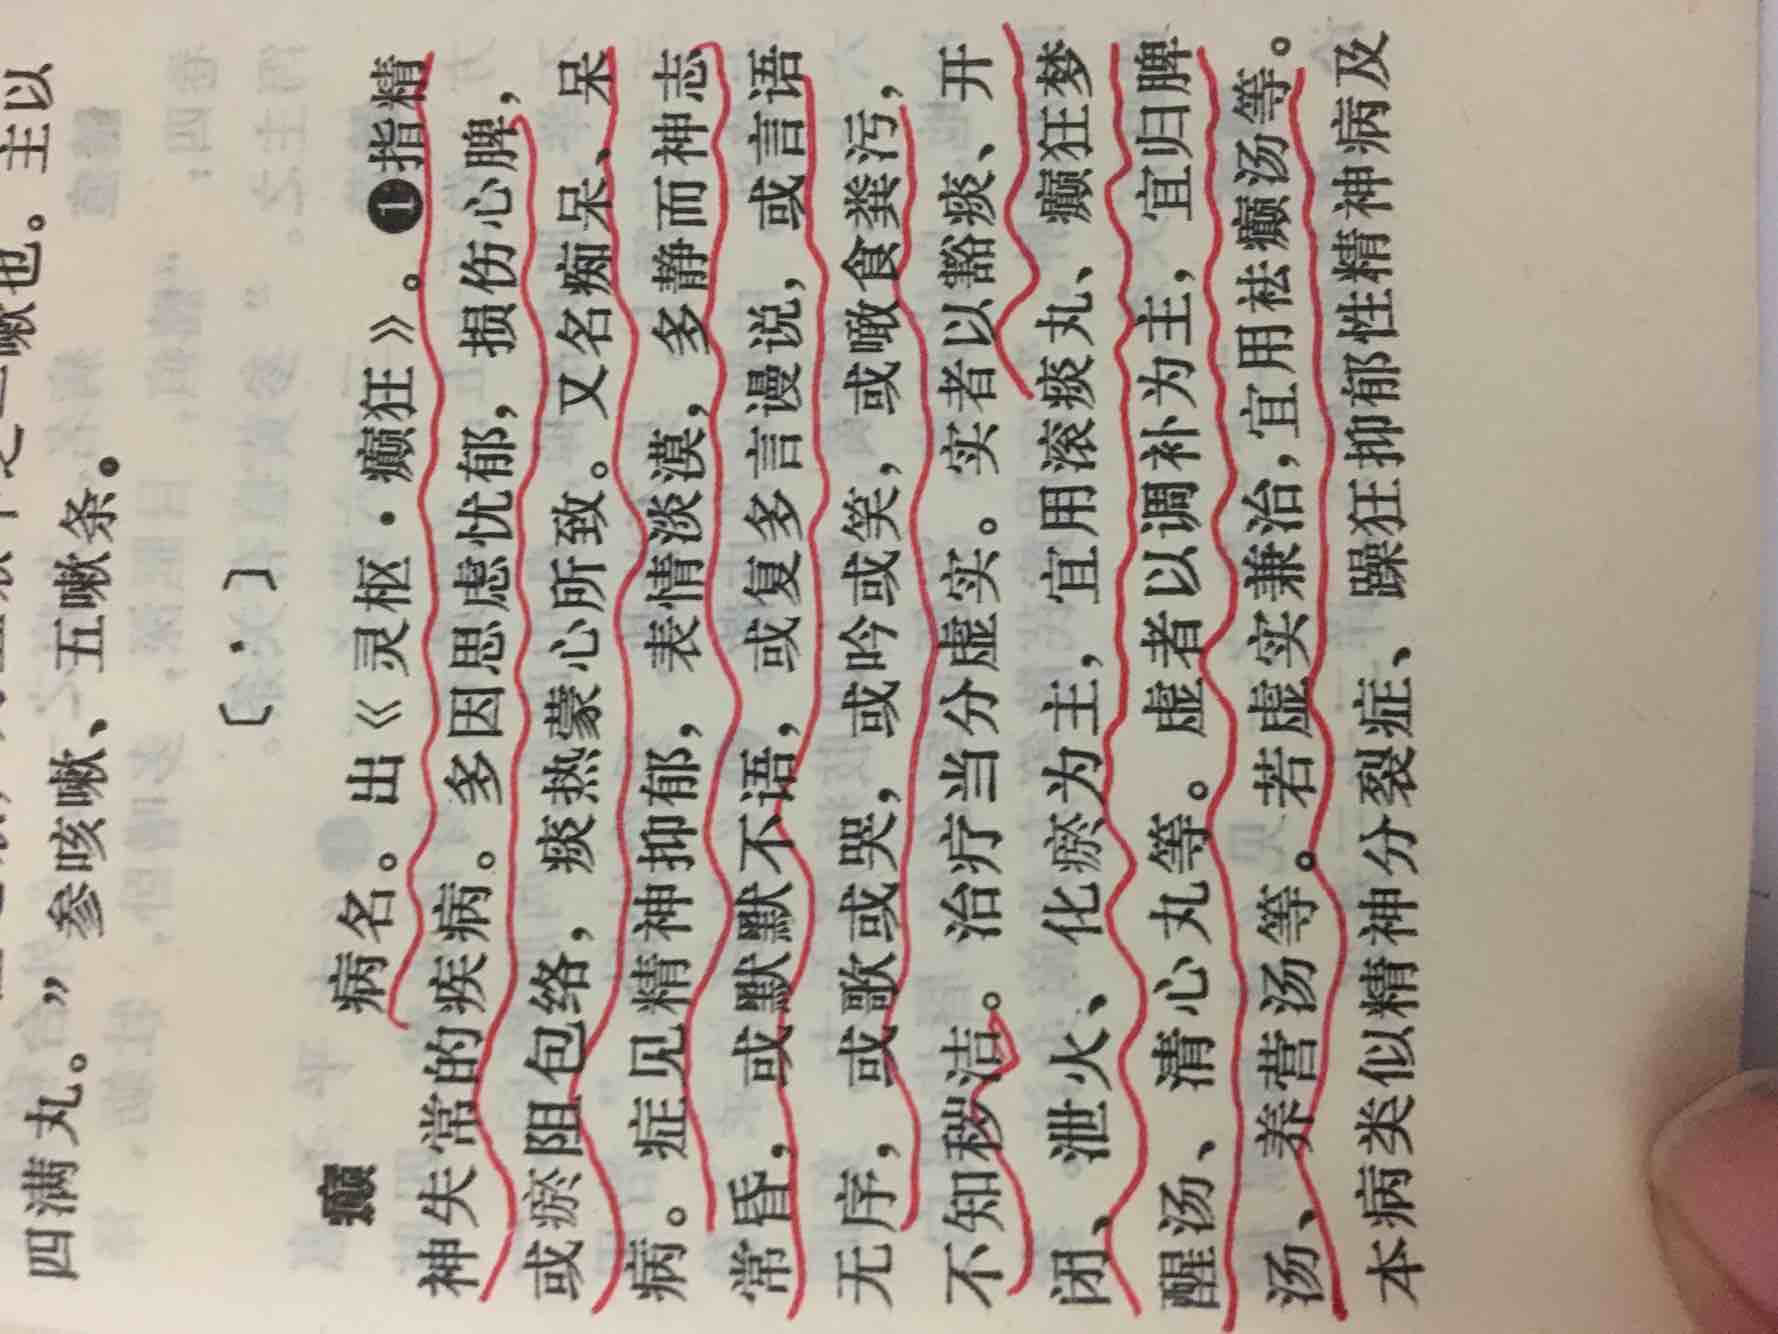 四满丸。” 参咳嗽、五嗽条。
〔·〕
癫　病名。出《灵枢·癫狂》。❶指精
神失常的疾病。多因思虑忧郁，损伤心脾，
或瘀阻包络，痰热蒙心所致。又名痴呆、呆
病。症见精神抑郁，表情淡漠，多静而神志
常昏，或默默不语，或复多言谩说，或言语
无序，或歌或哭，或吟或笑，或噉食粪污，
不知秽洁。治疗当分虚实。实者以豁痰、开
闭、泄火、化瘀为主，宜用滚痰丸、癫狂梦
醒汤、清心丸等。虚者以调补为主，宜归脾
汤、养营汤等。若虚实兼治，宜用祛癫汤等。
本病类似精神分裂症、躁狂抑郁性精神病及